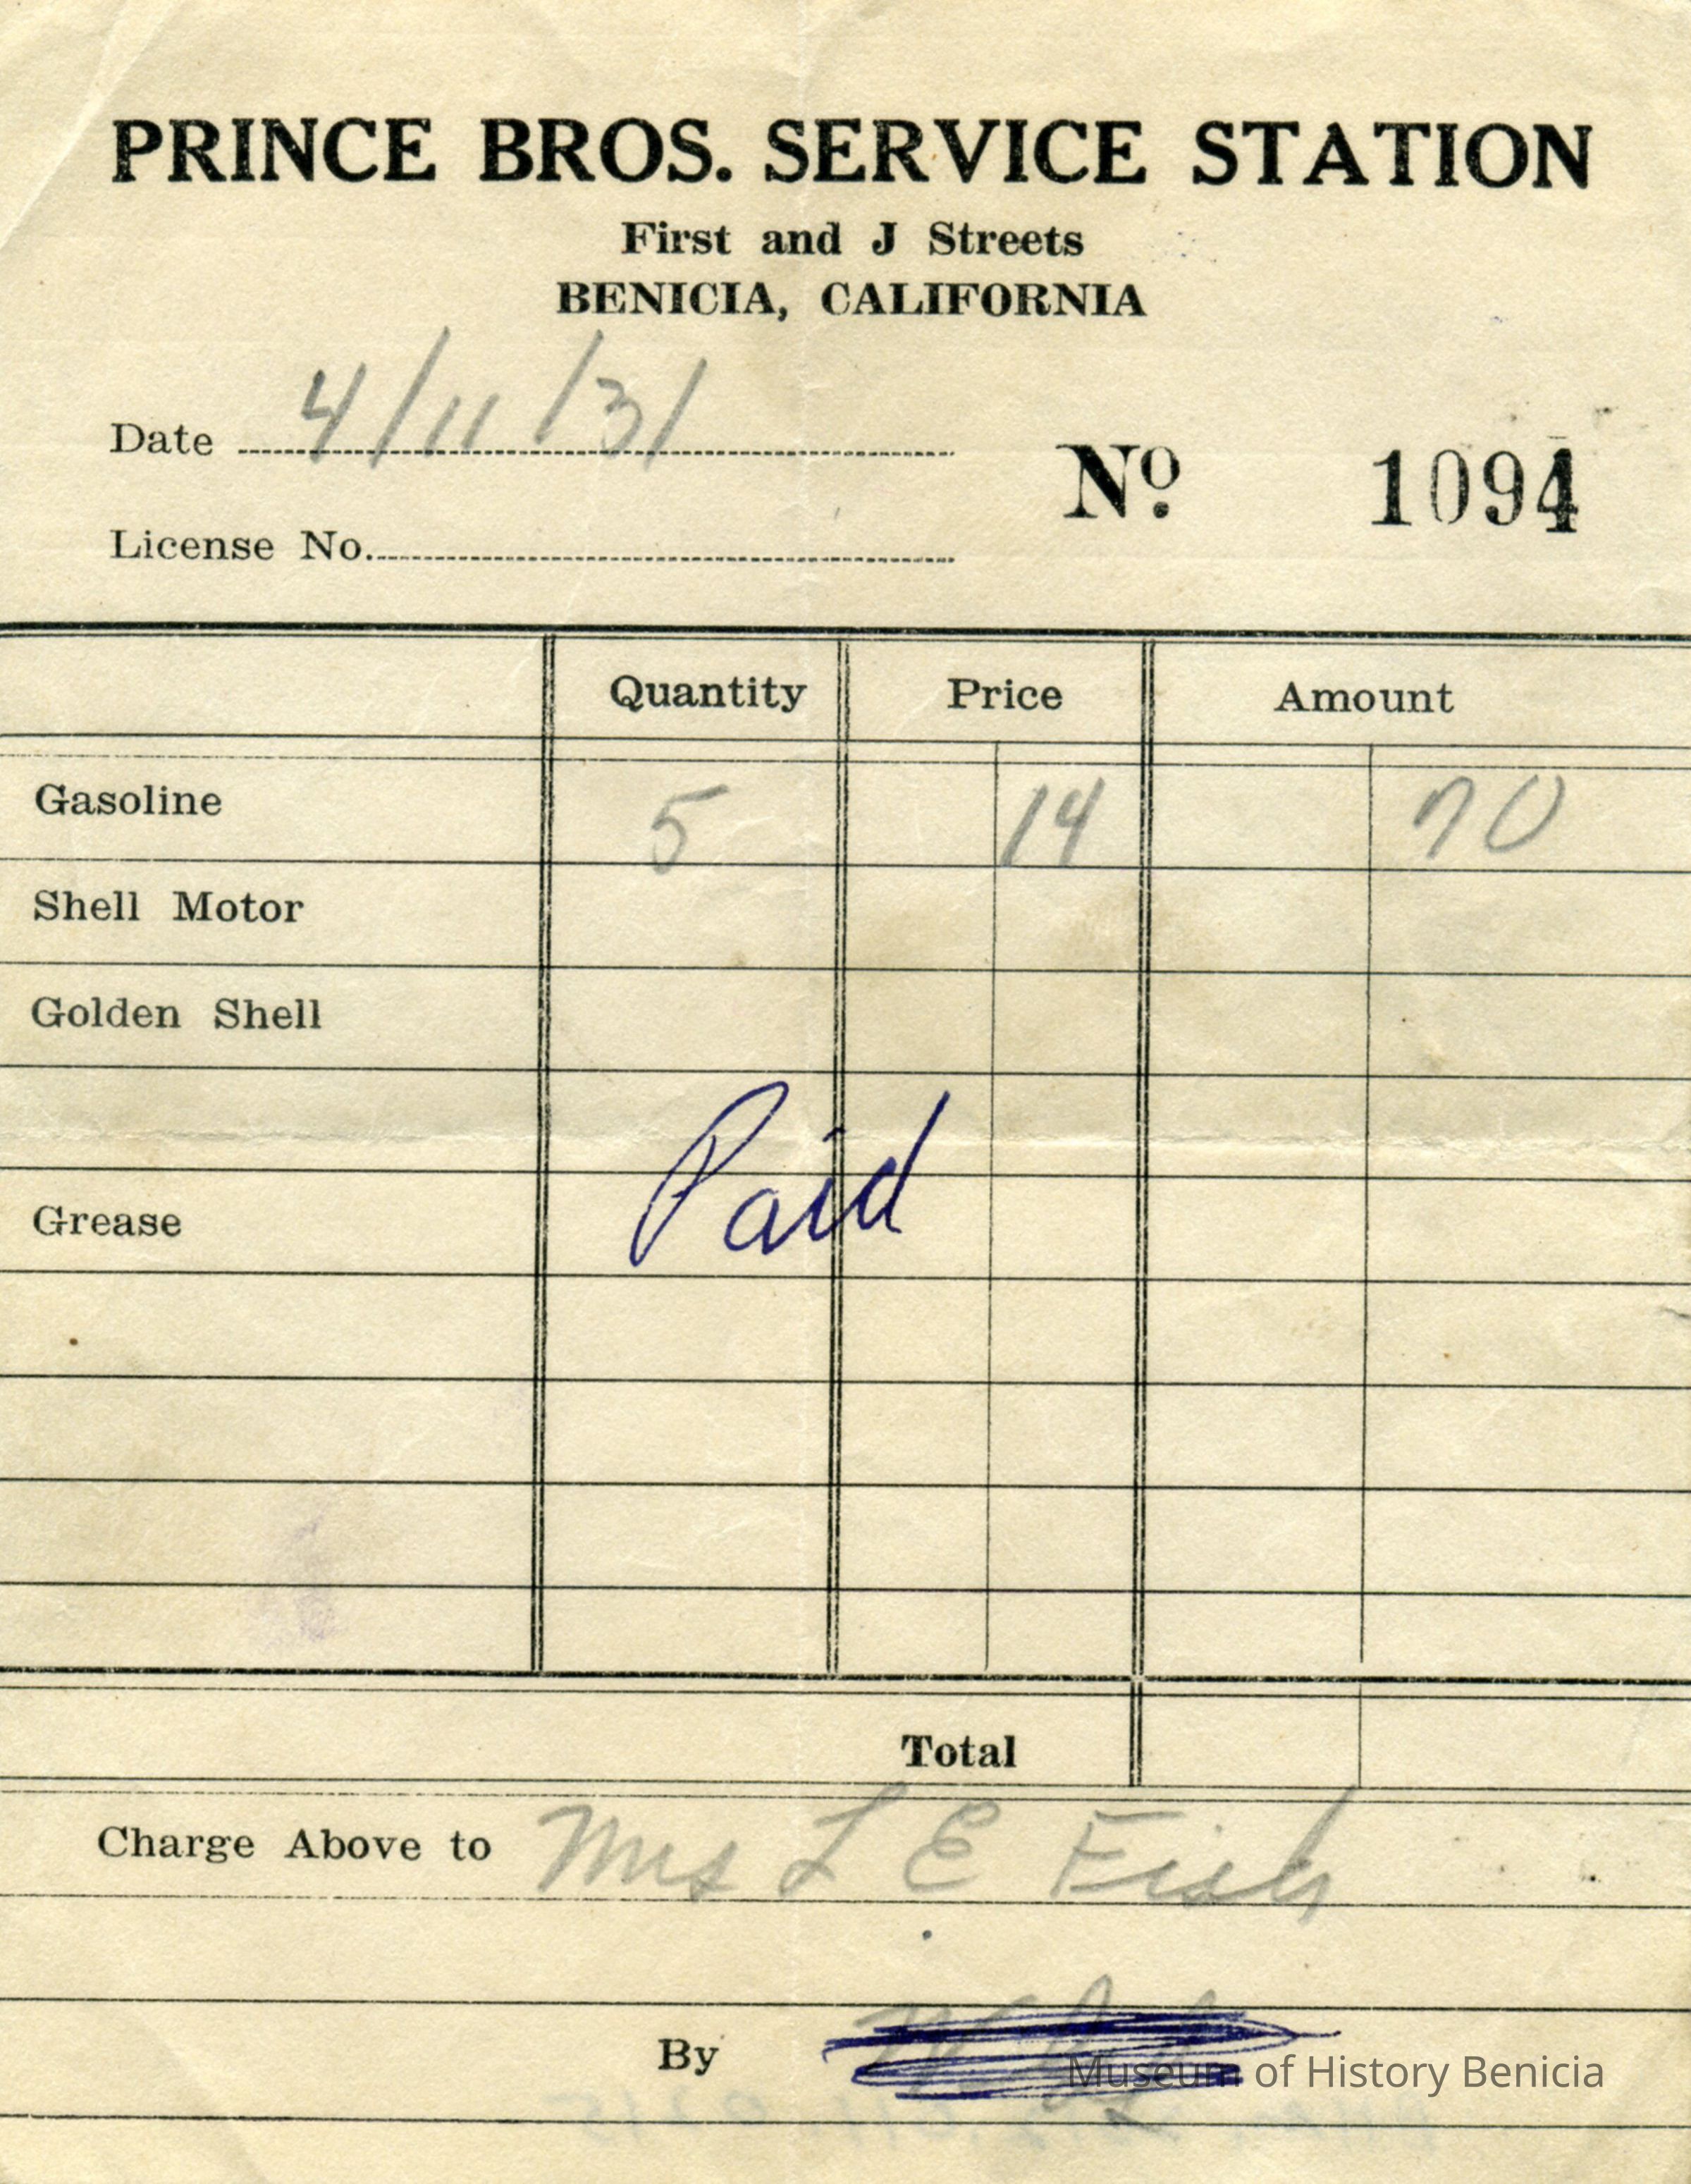 PRINCE BROS. SERVICE STATION
First and J Streets
BENICIA, CALIFORNIA
Date 4/11/31
No. 1094
License No.
Quantity Price Amount
Gasoline 5 14 70
Shell Motor
Golden Shell
Paid
Grease
Total
Charge Above to Mrs L E Fish
By
Museum of History Benicia